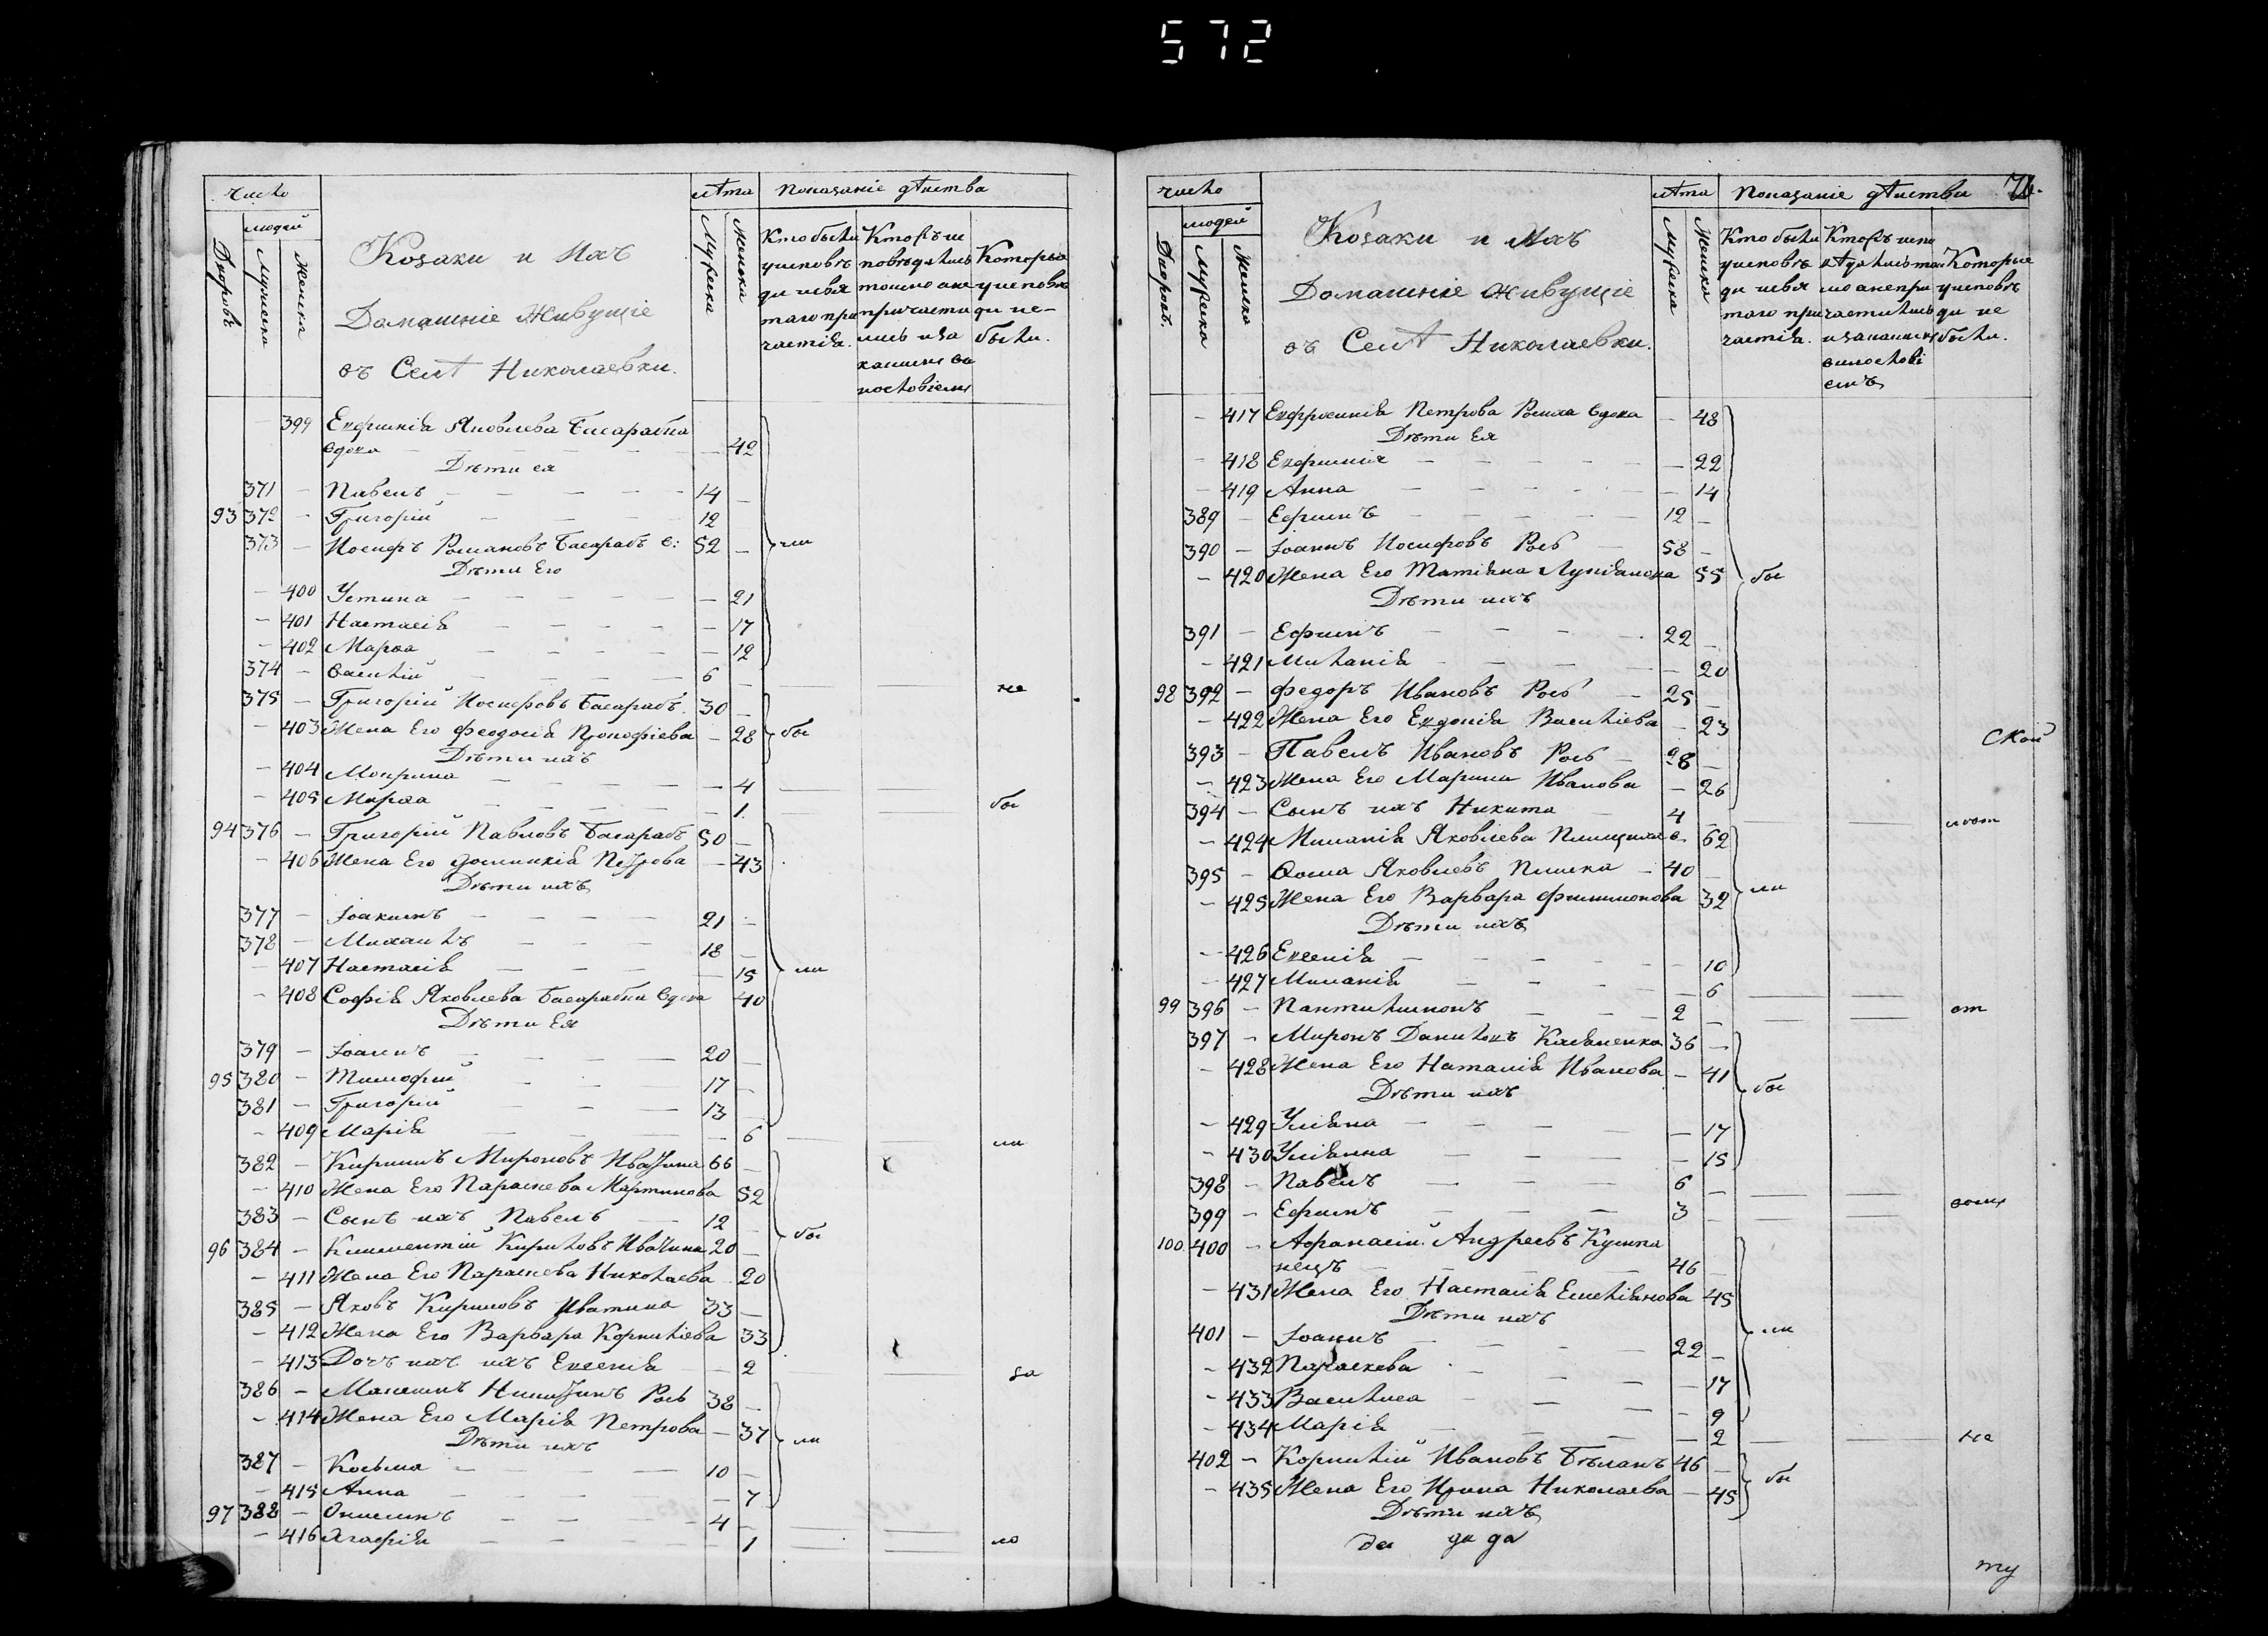 572
число
лѣта
Показаніе дѣйства
людей
Дворовъ
Мужеска
Женска
Козаки и Ихъ
Домашніе Живущіе
въ Селѣ Николаевки.
Мужеска
Женска
Кто были
у исповѣ
ди и свя
таго при
частія.
Кто исповѣдались
токмо а не
причасти
лись и за
каким ви
нословіемъ
Которые
у исповѣ
ди не
были.
- 399 Евфимія Яковлева Басарабка
вдова - 42
Дѣти ея
371 - Павелъ 14 -
93 372 - Григорій 12
373 - Иосифъ Романовъ Басарабъ в: 52 - ли
Дѣти Его
- 400 Устина - 21
- 401 Настасія - 17
- 402 Марфа - 12
374 - Василій 6 - не
375 - Григорій Иосифовъ Басарабъ 30 -
- 403 Жена Его Феодосія Прокофіева - 28 бы
Дѣти ихъ
- 404 Мокрина - 4
- 405 Марфа - 1. бы
94 376 - Григорій Павловъ Басарабъ 50 -
- 406 Жена Его Домникія Петрова - 43
Дѣти ихъ
377 - Іоакимъ 21 -
378 - Михаилъ 18 -
- 407 Настасія - 15 ли
- 408 Софія Яковлева Басарабка вдова 40
Дѣти Ея
379 - Іоаннъ 20 -
95 380 - Тимофій 17 -
381 - Григорій 13 -
- 409 Марія - 6 ли
382 - Кирилъ Мироновъ Иватина 66 -
- 410 Жена Его Параскева Мартинова 52
383 - Сынъ ихъ Павелъ 12 -
96 384 - Климентій Кириловъ Иватина 20 - бы
- 411 Жена Его Параскева Николаева 20
385 - Яковъ Кириловъ Иватина 33 -
- 412 Жена Его Варвара Корнилїева 33
- 413 Дочъ ихъ Евгенія - 2 за
386 - Максимъ Никитинъ Рогъ 38 -
- 414 Жена Его Марія Петрова - 37 ли
Дѣти ихъ
387 - Косьма 10 -
- 415 Анна - 7
97 388 - Онисимъ 4 -
- 416 Агафія - 1 ло
число
лѣта
Показаніе дѣйства
людей
Дворовъ
Мужеска
Женска
Козаки и Ихъ
Домашніе Живущіе
въ Селѣ Николаевки.
Мужеска
Женска
Кто были
у исповѣ
ди и свя
таго при
частія.
Которые
у исповѣ
ди не
были.
- 417 Евфросинія Петрова Рогиха вдова - 48
Дѣти Ея
- 418 Евфимія - 22
- 419 Анна - 14
389 - Ефимъ 12 -
390 - Іоаннъ Иосифовъ Рогъ 58 -
- 420 Жена Его Татіяна Лукіянова 55 бы
Дѣти ихъ
391 - Ефимъ 22 -
- 421 Миланія - 20
98 392 - Федоръ Ивановъ Рогъ 25 -
- 422 Жена Его Евдокія Василіева - 23
ской
393 - Павелъ Ивановъ Рогъ 28 -
- 423 Жена Его Марина Иванова - 26
394 - Сынъ ихъ Никита 4
- 424 Миланія Яковлева в. 62
395 - Фома Яковлевъ 40 -
- 425 Жена Его Варвара Филимонова 32 ли
Дѣти ихъ
- 426 Евгенія - 10
- 427 Миланія - 6
99 396 - Пантилимонъ 2 - ст
397 - Миронъ Даниловъ Касяненко 36 -
- 428 Жена Его Наталія Иванова - 41
Дѣти ихъ бы
- 429 Уліяна - 17
- 430 Уліянна - 15
398 - Павелъ 6 -
399 - Ефимъ 3 -
100 400 - Афанасій Андреевъ Кушни
нецъ 46 -
- 431 Жена Его Настасія Емеліянова 45
Дѣти ихъ
401 - Іоаннъ 22 - ли
- 432 Параскева - 17
- 433 Василиса - 9
- 434 Марія - 2 не
402 - Корнилій Ивановъ Бѣланъ 46 -
- 435 Жена Его Ирина Николаева - 45 бы
Дѣти ихъ
да да да
ту